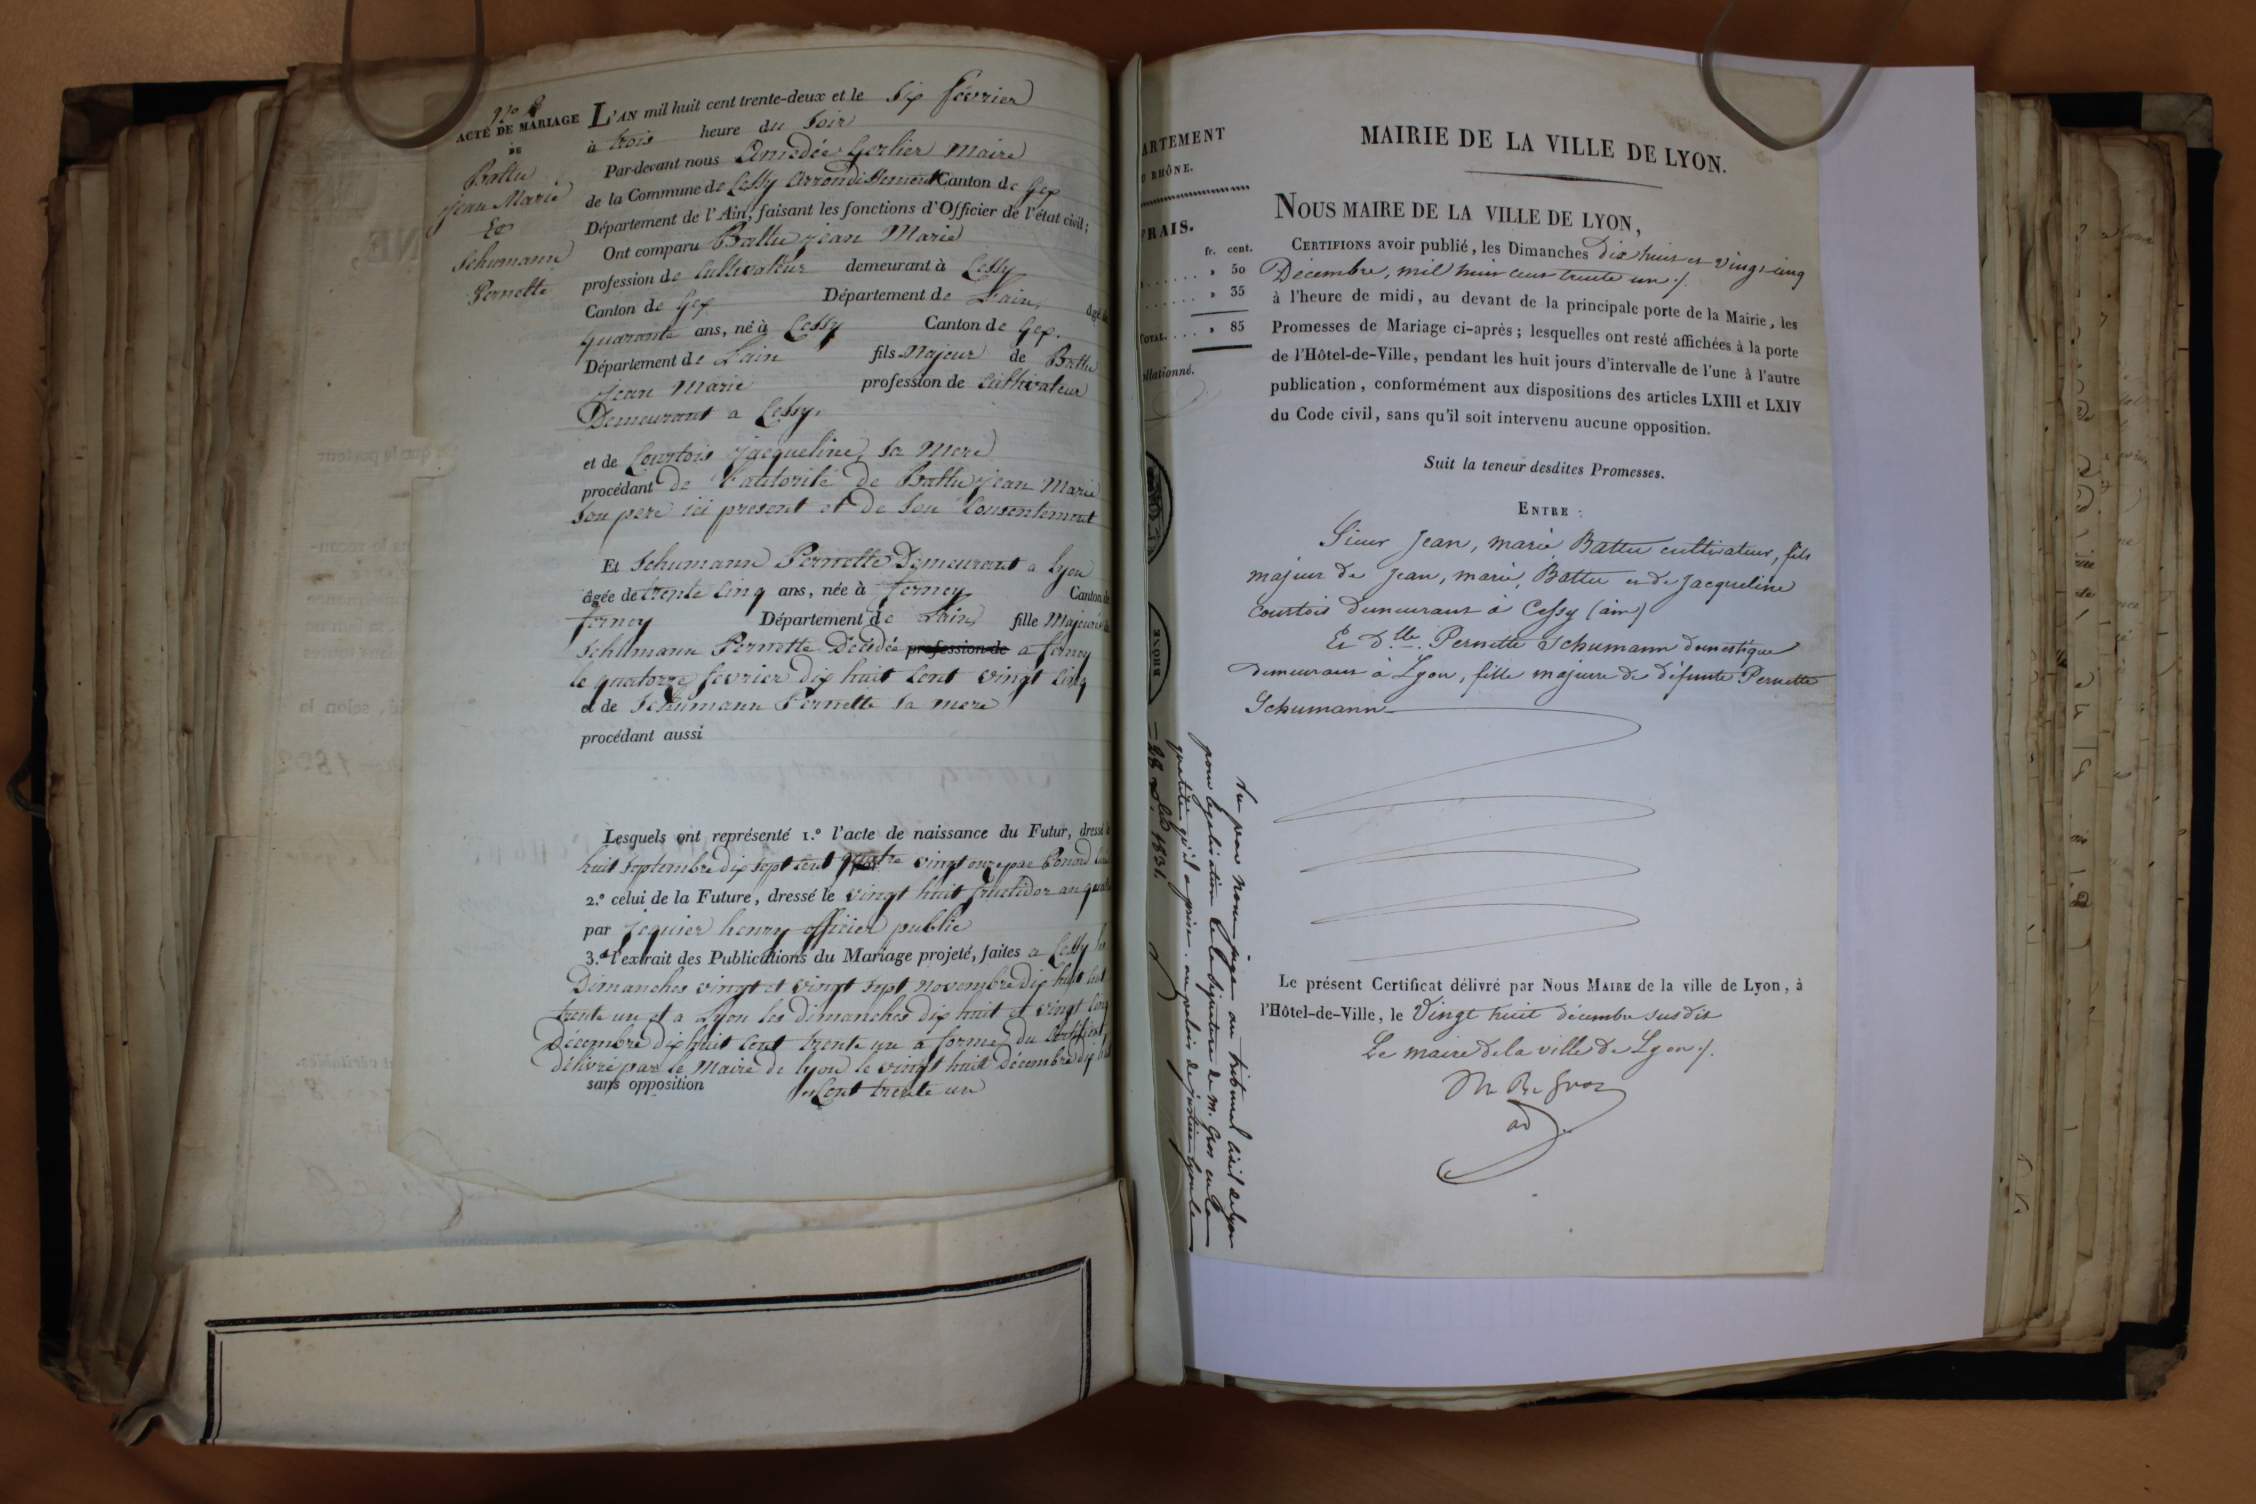 ACTE DE MARIAGE
DE
Battu
Jean Marie
Et
Schumann
Pernette
L'AN mil huit cent trente-deux et le six février
à trois heure du soir
Par-devant nous Amedée Gerlier Maire
de la Commune de Cessy Arrondissement Canton de Gex
Département de l'Ain, faisant les fonctions d'Officier de l'état civil;
Ont comparu Battu jean Marie
profession de Cultivateur demeurant à Cessy
Canton de Gex Département de Lain, âgé de
quarante ans, né à Cessy Canton de Gex.
Département de Lain fils Majeur de Battu
Jean Marie profession de Cultivateur
Demeurant a Cessy.
et de Courtois jacqueline, sa Mere
procédant de l'autorité de Battu jean Marie
son pere ici present et de son Consentement
Et Schumann Pernette Demeurant a Lyon
âgée de trente cinq ans, née à ferney Canton de
ferney Département de Lain, fille Majeure de
Schumann Pernette Décédée profession de a ferney
le quatorze fevrier dix huit Cent vingt Cinq
et de Schumann Pernette sa mere
procédant aussi
Lesquels ont représenté 1.º l'acte de naissance du Futur, dressé le
huit Septembre dix sept Cent quatre vingt onze par
2.º celui de la Future, dressé le vingt huit fructidor an quatre
par Jequier henry officier public
3.º l'extrait des Publications du Mariage projeté, faites a Cessy les
Dimanches vingt et vingt sept Novembre dix huit Cent
trente un et a Lyon les dimanches dix huit et vingt Cinq
Décembre dix huit Cent trente un a forme du Certificat
délivré par le Maire de lyon le vingt huit décembre dix huit
sans opposition Cent trente un
ARTEMENT
RHÔNE.
FRAIS.
fr. cent.
» 50
» 35
TOTAL. . . . » 85
ollationné.
RHÔNE
28 Xbre 1831.
Vu par nous juge au tribunal civil de Lyon
pour légalisation de la signature de M. Gros en la
qualité qu'il a prise. au palais de justice Lyon le
MAIRIE DE LA VILLE DE LYON.
NOUS MAIRE DE LA VILLE DE LYON,
CERTIFIONS avoir publié, les Dimanches dix huit et vingt cinq
Décembre, mil huit cent trente un ./.
à l'heure de midi, au devant de la principale porte de la Mairie, les
Promesses de Mariage ci-après; lesquelles ont resté affichées à la porte
de l'Hôtel-de-Ville, pendant les huit jours d'intervalle de l'une à l'autre
publication, conformément aux dispositions des articles LXIII et LXIV
du Code civil, sans qu'il soit intervenu aucune opposition.
Suit la teneur desdites Promesses.
ENTRE :
Sieur Jean, marie Battu cultivateur, fils
majeur de Jean, marie, Battu et de Jacqueline
Courtois demeurant à Cessy (ain)
Et Dlle. Pernette Schumann domestique
demeurant à Lyon, fille majeure de défunte Pernette
Schumann
Le présent Certificat délivré par NOUS MAIRE de la ville de Lyon, à
l'Hôtel-de-Ville, le Vingt huit décembre susdit
Le maire de la ville de Lyon ./.